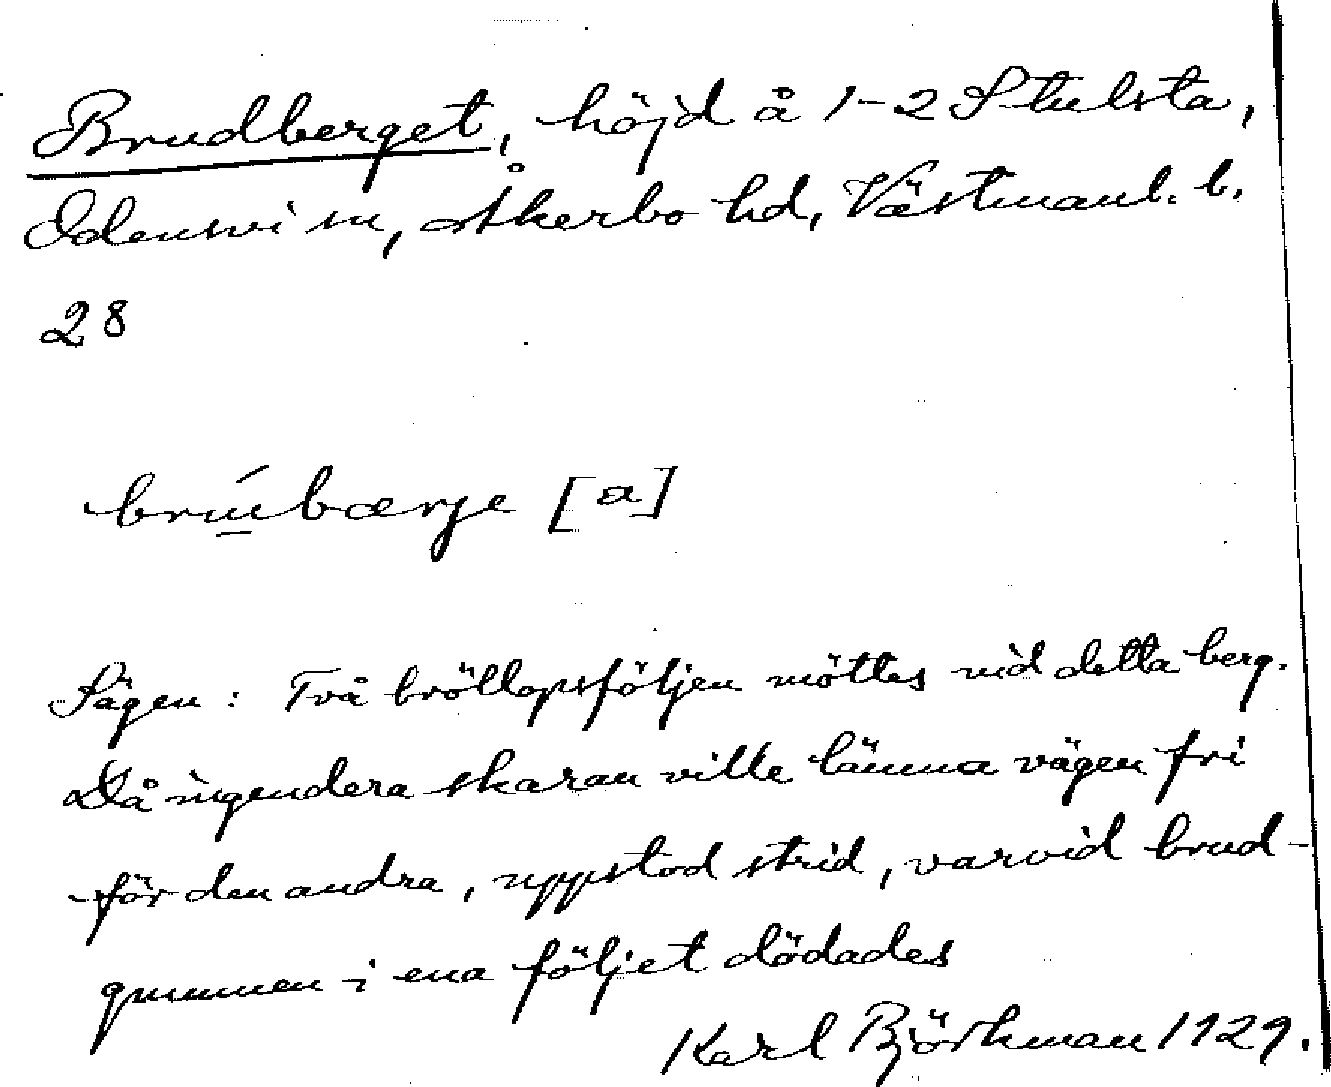 Brudberget, höjd å 1-2 Stulsta,
Odensvi sn, Åkerbo hd, Västmanl. l.
28
brúbærje [a]
Sägen: Två bröllopsföljen möttes vid detta berg.
Då ingendera skaran ville lämna vägen fri
för den andra, uppstod strid, varvid brud-
gummen i ena följet dödades
Karl Björkman 1929.